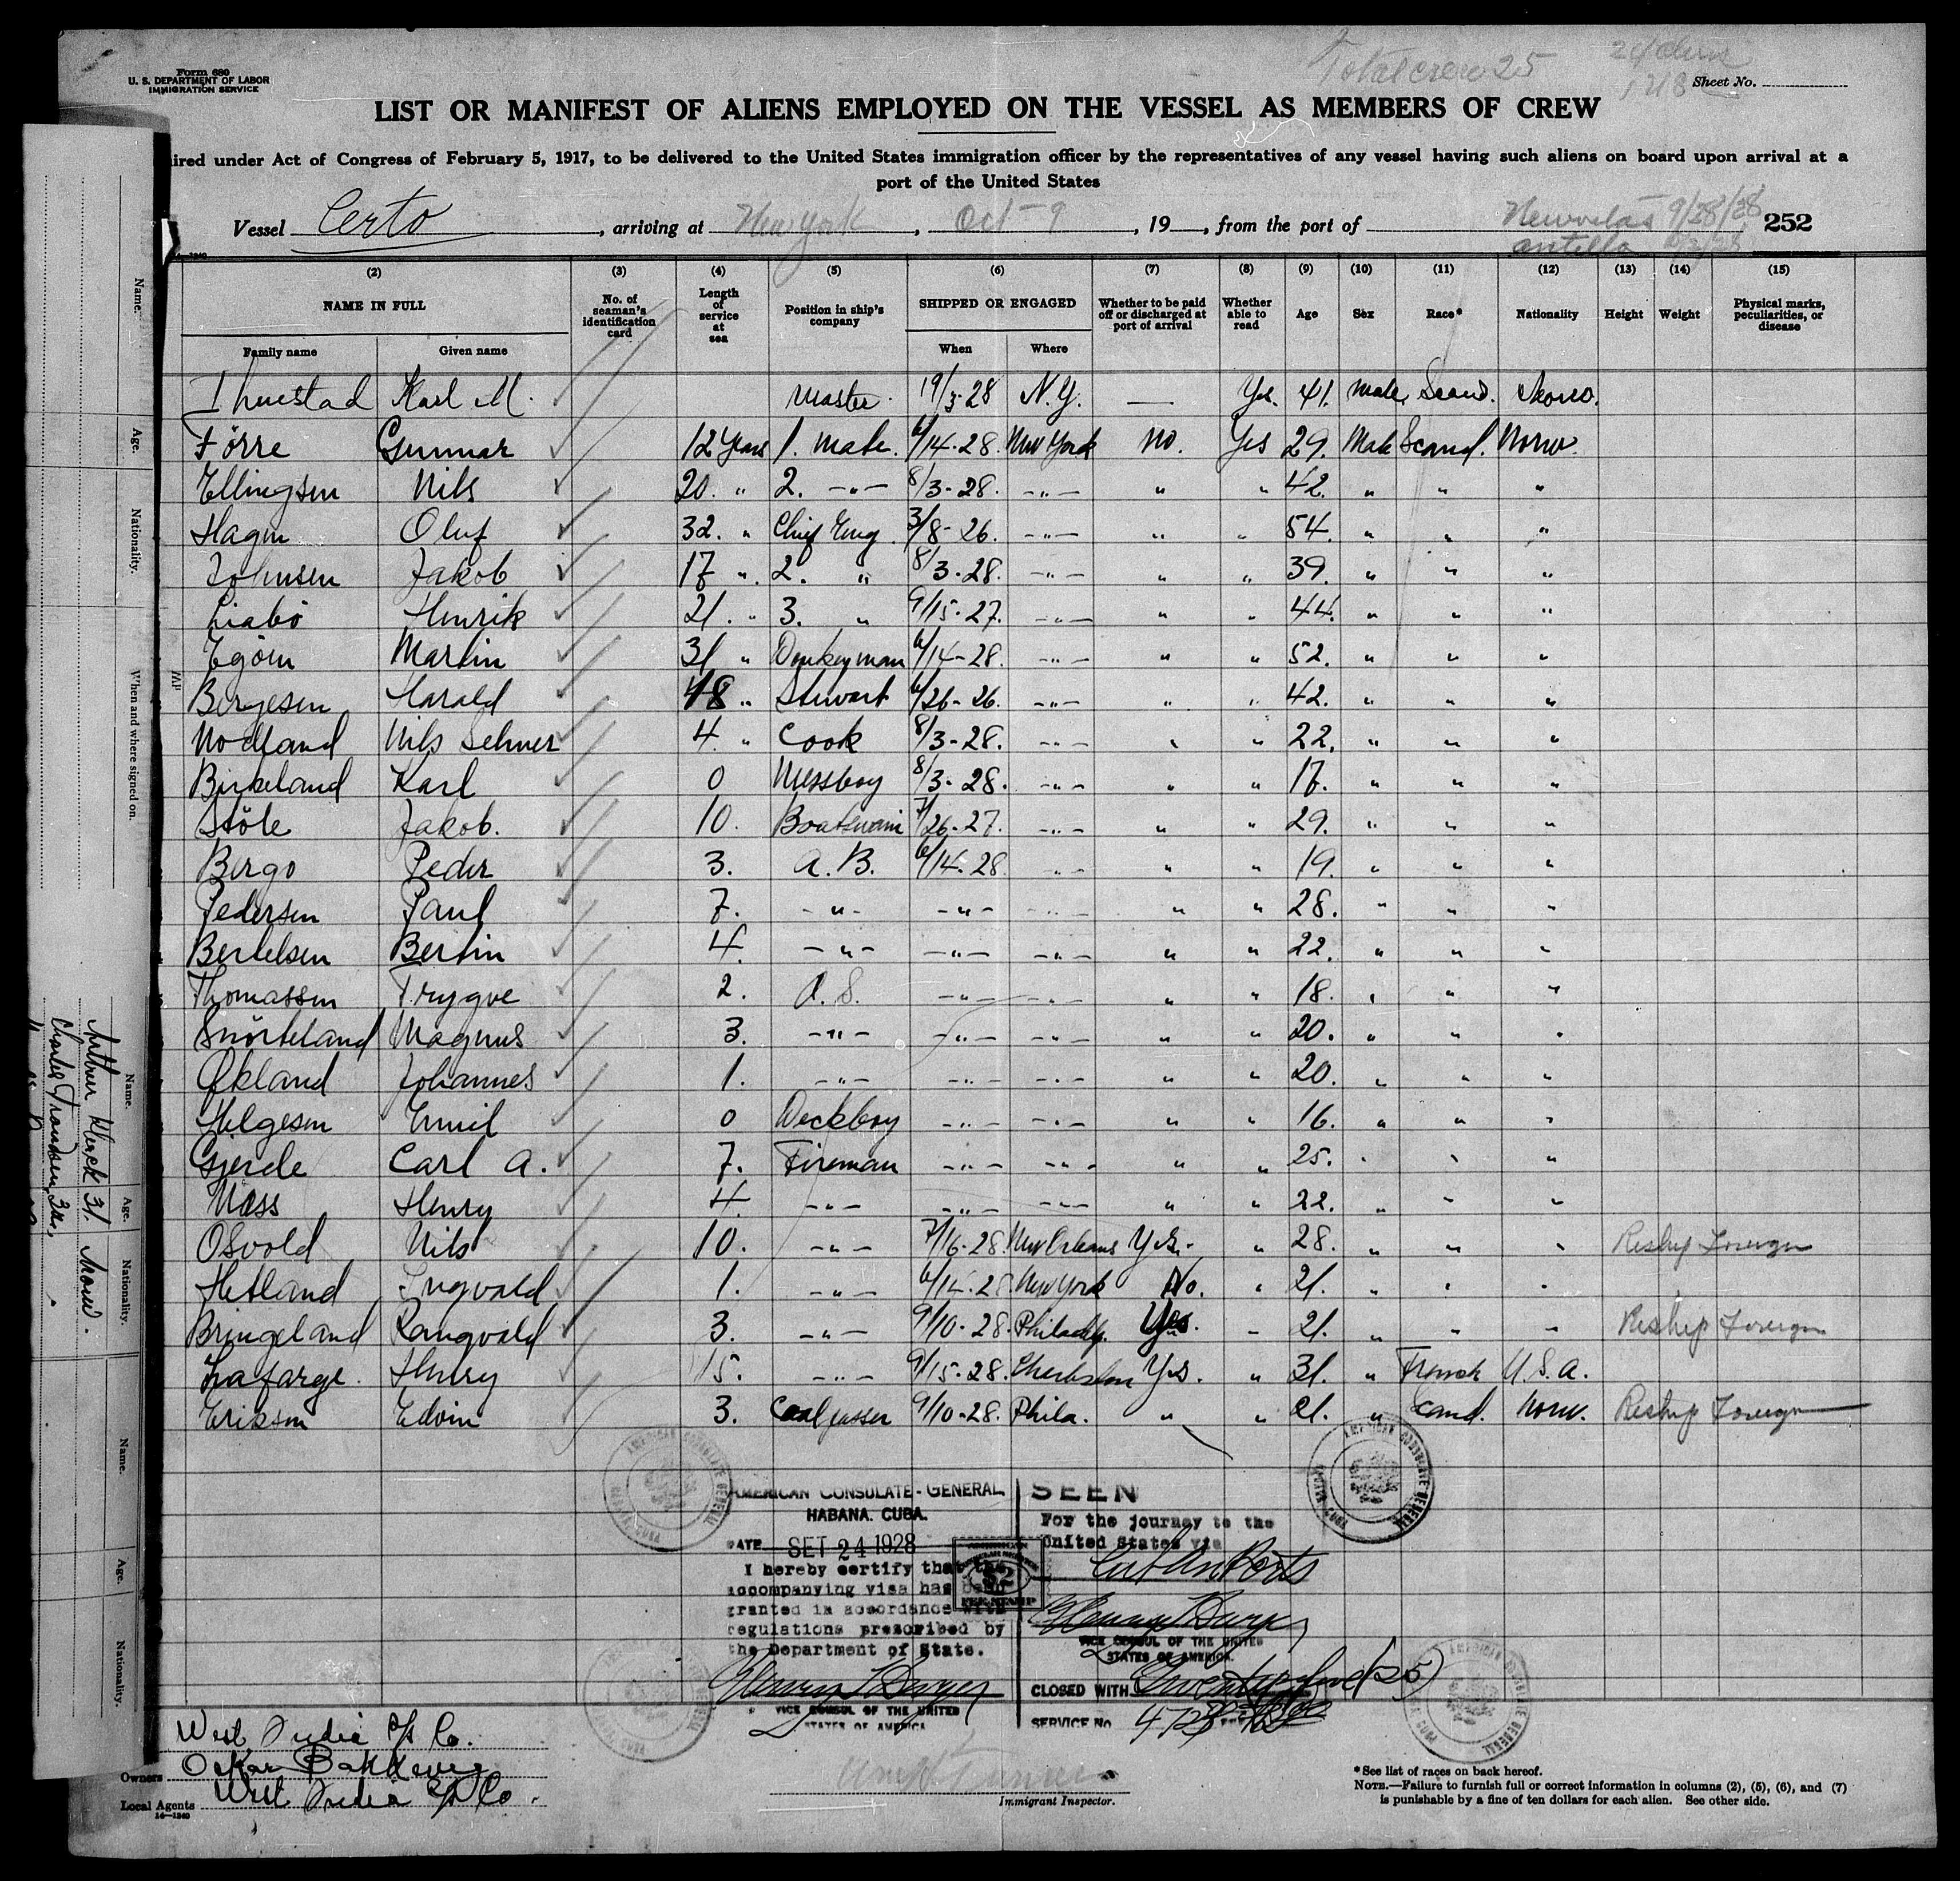 Form 680
U. S. DEPARTMENT OF LABOR
IMMIGRATION SERVICE
Total crew 25
Sheet No.
LIST OR MANIFEST OF ALIENS EMPLOYED ON THE VESSEL AS MEMBERS OF CREW
ired under Act of Congress of February 5, 1917, to be delivered to the United States immigration officer by the representatives of any vessel having such aliens on board upon arrival at a
port of the United States
Vessel Certo, arriving at New York, Oct 9, 19, from the port of 9/28/28 252
antilla
(2) (3) (4) (5) (6) (7) (8) (9) (10) (11) (12) (13) (14) (15)
NAME IN FULL No. of seaman's identification card Length of service at sea Position in ship's company SHIPPED OR ENGAGED Whether to be paid off or discharged at port of arrival Whether able to read Age Sex Race* Nationality Height Weight Physical marks, peculiarities, or disease
Family name Given name When Where
Karl M. Master 19/3-28 N.Y. — Yes. 41. Male Scand.
Førre Gunnar 12 Years 1. mate. 6/14-28. New York No. Yes 29. Male Scand. Norw.
Ellingsen Nils 20. " 2. -"- 8/3-28. -"- " " 42. " " "
Hagen Oluf 32. " Chief Eng. 3/8-26. -"- " " 54. " " "
Johnsen Jakob 17 " 2. " 8/3-28. -"- " " 39. " " "
Liabø Henrik 21. " 3. " 9/15-27. -"- " " 44. " " "
Martin 31 " Donkeyman 6/14-28. -"- " " 52. " " "
Bergesen Harald 18 " Stewart 6/26-26. -"- " " 42. " " "
Nodland Nils Selmer 4. " Cook 8/3-28. -"- " " 22. " " "
Birkeland Karl 0 Messboy 8/3-28. -"- " " 17. " " "
Støle Jakob. 10. Boatswain 7/26-27. -"- " " 29. " " "
Bergo Peder 3. A.B. 6/14-28 -"- " " 19. " " "
Pedersen Paul 7. -"- -"- -"- " " 28. " " "
Bertelsen Bertin 4. -"- -"- -"- " " 22. " " "
Thomassen Trygve 2. O.S. -"- -"- " " 18. " " "
Snörteland Magnus 3. -"- -"- -"- " " 20. " " "
Økland Johannes 1. -"- -"- -"- " " 20. " " "
Helgesen Emil 0 Deckboy -"- -"- " " 16. " " "
Gjerde Carl A. 7. Fireman -"- -"- " " 25. " " "
Næss Henry 4. -"- -"- -"- " " 22. " " "
Osvold Nils 10. -"- 7/16-28. New Orleans Yes. " 28. " " " Reship Foreign
Hetland Ingvald 1. -"- 6/14-28 New York No. " 21. " " "
Bringeland Rangvald 3. -"- 9/10-28. Philadlp. Yes. " 21. " " " Reship Foreign
Lafarge. Henry 15. -"- 9/15-28. Charleston Yes. " 31. " French U.S.A.
Erikson Edvin 3. Coal passer 9/10-28. Phila. " " 21. " cand. Norw. Reship Foreign
AMERICAN CONSULATE-GENERAL,
HABANA. CUBA.
DATE SET 24 1928
I hereby certify that the
accompanying visa has been
granted in accordance with
regulations prescribed by
the Department of State.
VICE CONSUL OF THE UNITED
STATES OF AMERICA
SEEN
For the journey to the
United States via
Cuban Ports
VICE CONSUL OF THE UNITED
STATES OF AMERICA.
CLOSED WITH Twenty five (25)
SERVICE No. 4728
AMERICAN CONSULATE GENERAL
West India S/S Co.
Owners Oskar
Local Agents West India S/S Co.
14—1240
Immigrant Inspector.
*See list of races on back hereof.
NOTE.—Failure to furnish full or correct information in columns (2), (5), (6), and (7)
is punishable by a fine of ten dollars for each alien. See other side.
Name.
Age.
Nationality.
When and where signed on.
Name.
Age.
Nationality.
Arthur 31. Norw.
Charles
Name.
Age.
Nationality.